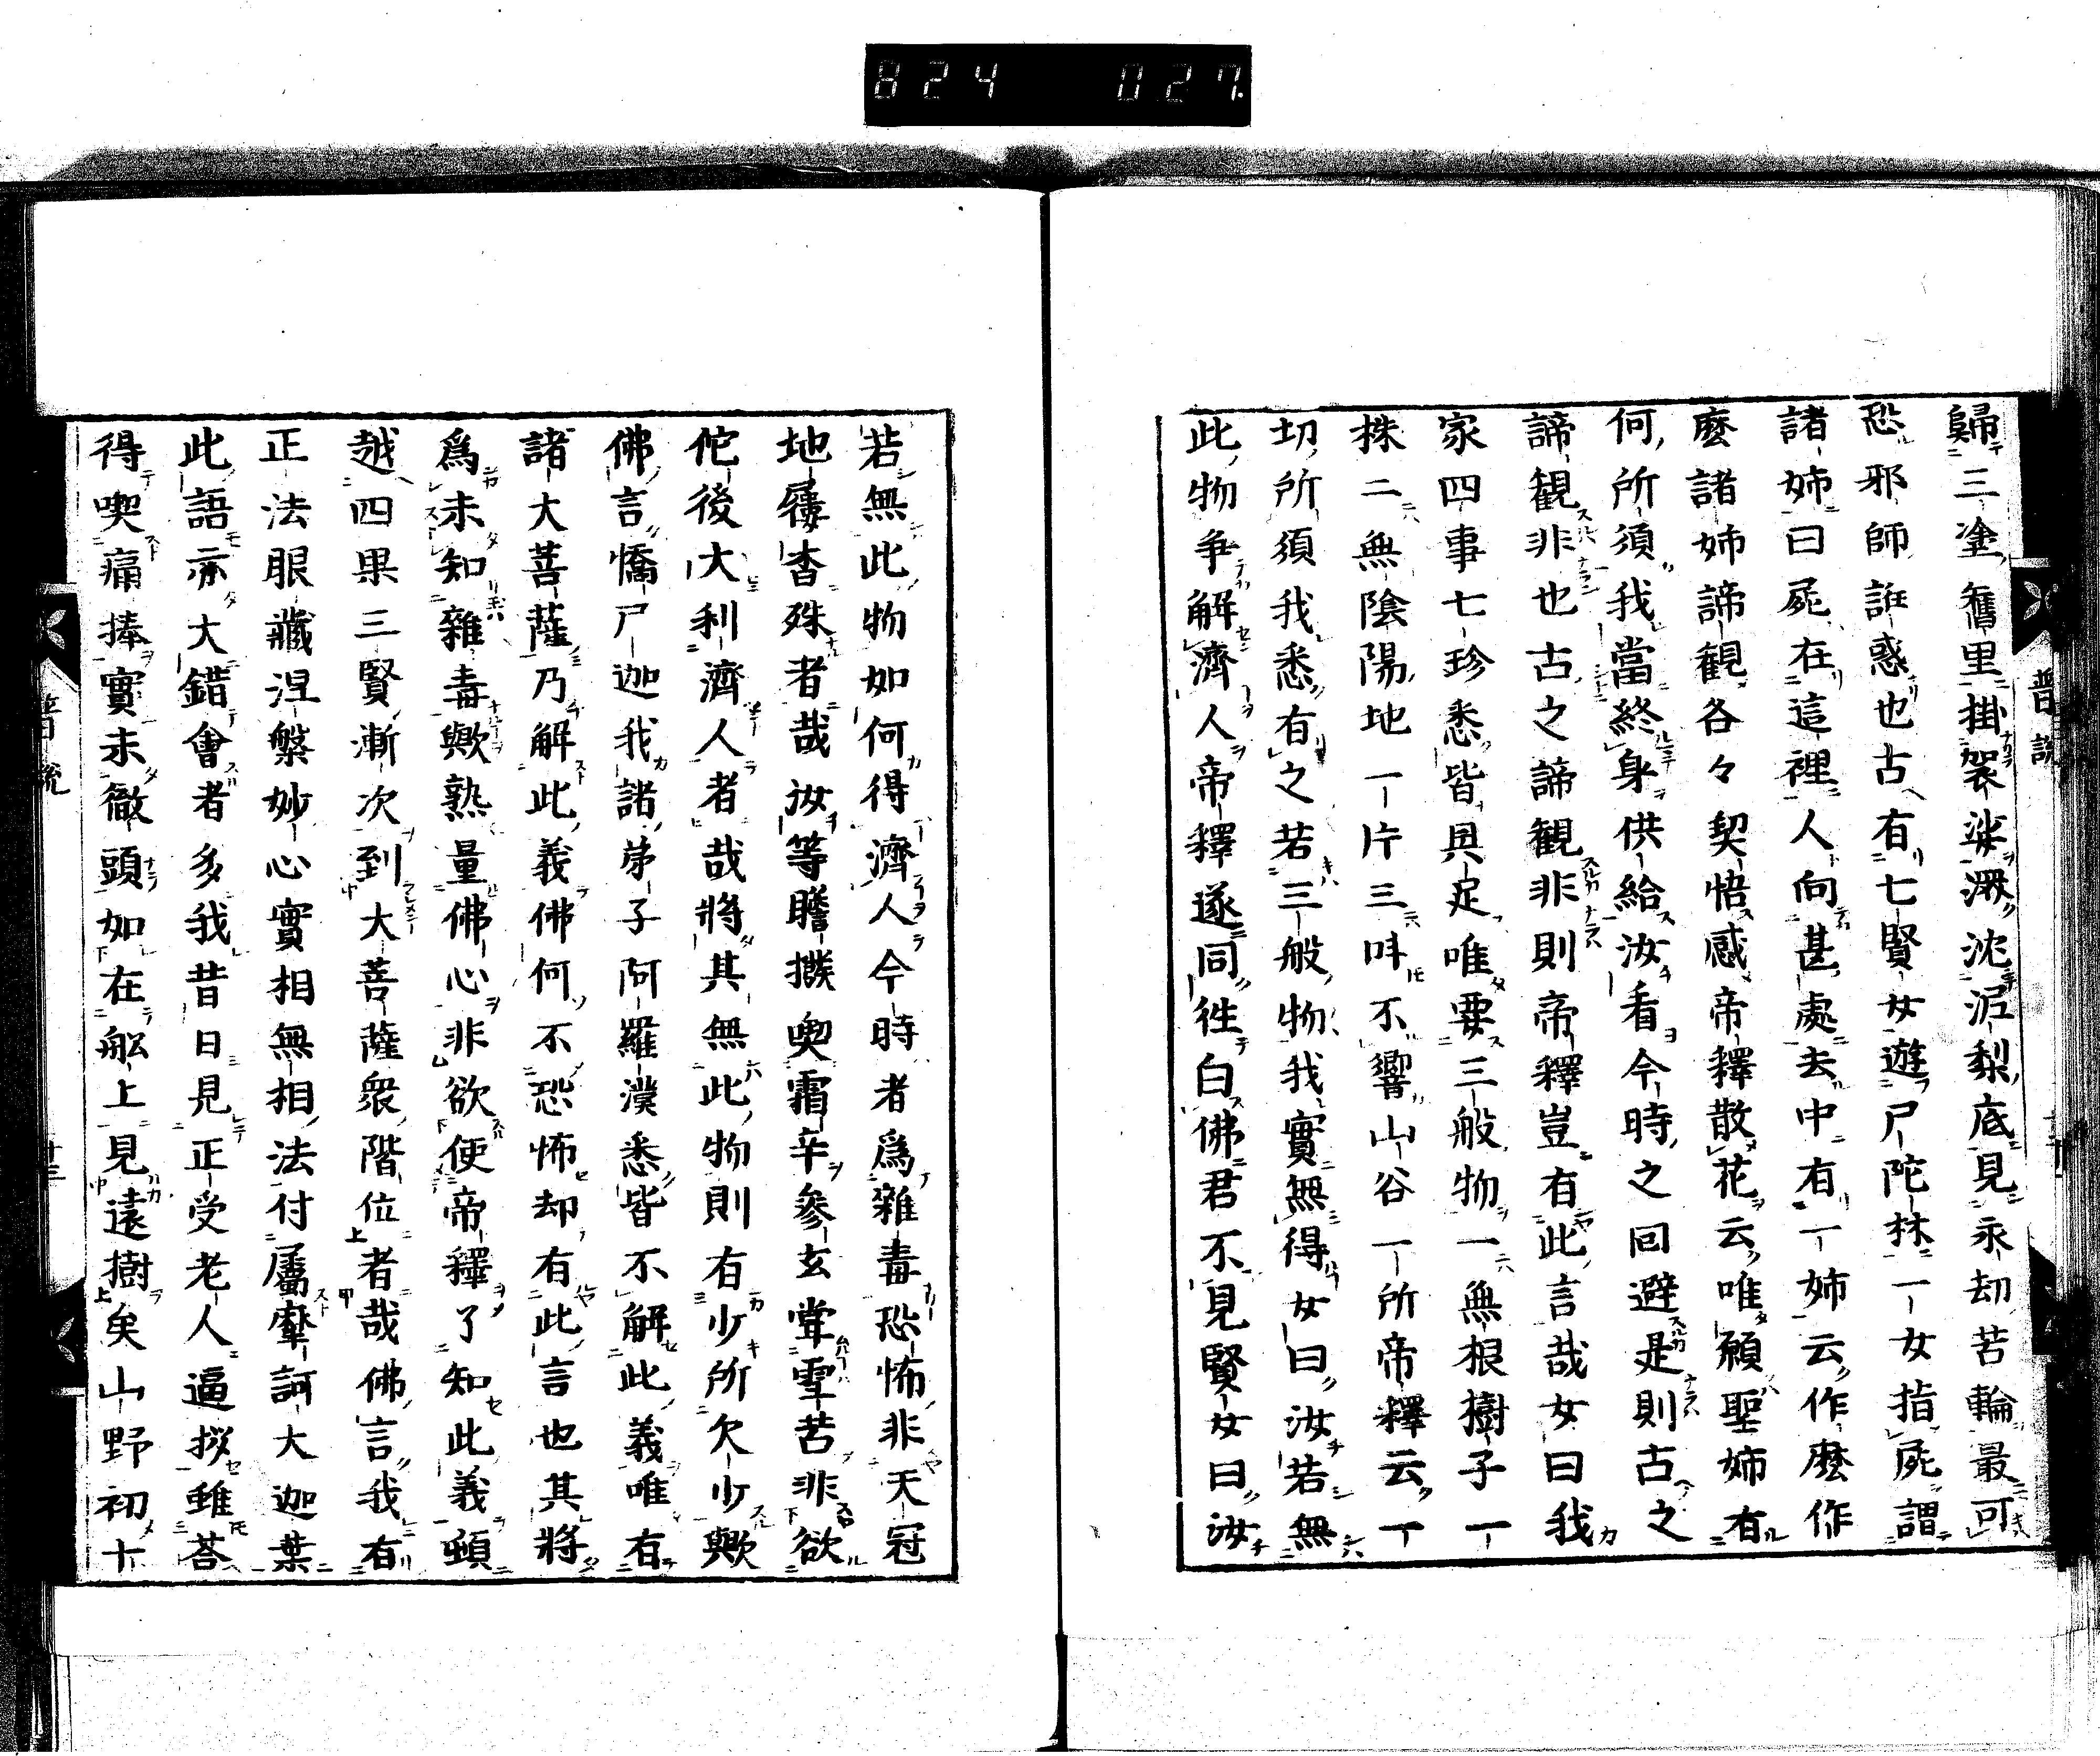 824 027
歸三塗舊里掛袈裟深沈泥梨底見永劫苦輪最可
恐邪師誑惑也古有七賢女遊尸陀林一女指屍謂
諸姉曰屍在這裡人向甚處去中有一姉云作麼作
麼諸姉諦觀各々契悟感帝釋散花云唯願聖姉有
何所須我當終身供給汝看今時之回避是則古之
諦觀非也古之諦觀非則帝釋豈有此言哉女曰我
家四事七珍悉皆具足唯要三般物一無根樹子一
株二無陰陽地一片三呌不響山谷一所帝釋云一
切所須我悉有之若三般物我實無得女曰汝若無
此物爭解濟人帝釋遂同徃白佛君不見賢女曰汝
若無此物如何得濟人今時者爲雜毒恐怖非天冠
地履杳殊者哉汝等瞻撥喫霜辛參玄甞雪苦非欲
佗後大利濟人者哉將其無此物則有少所欠少歟
佛言憍尸迦我諸弟子阿羅漢悉皆不解此義唯有
諸大菩薩乃解此義佛何不恐怖却有此言也其將
爲未知雜毒歟熟量佛心非欲便帝釋了知此義頓
越四果三賢漸次到大菩薩衆階位者哉佛言我有
正法眼藏涅槃妙心實相無相法付屬摩訶大迦葉
此語亦大錯會者多我昔日見正受老人逼拶雖荅
得喫痛捧實未徹頭如在舩上見遠樹矣山野初十
普説
十三